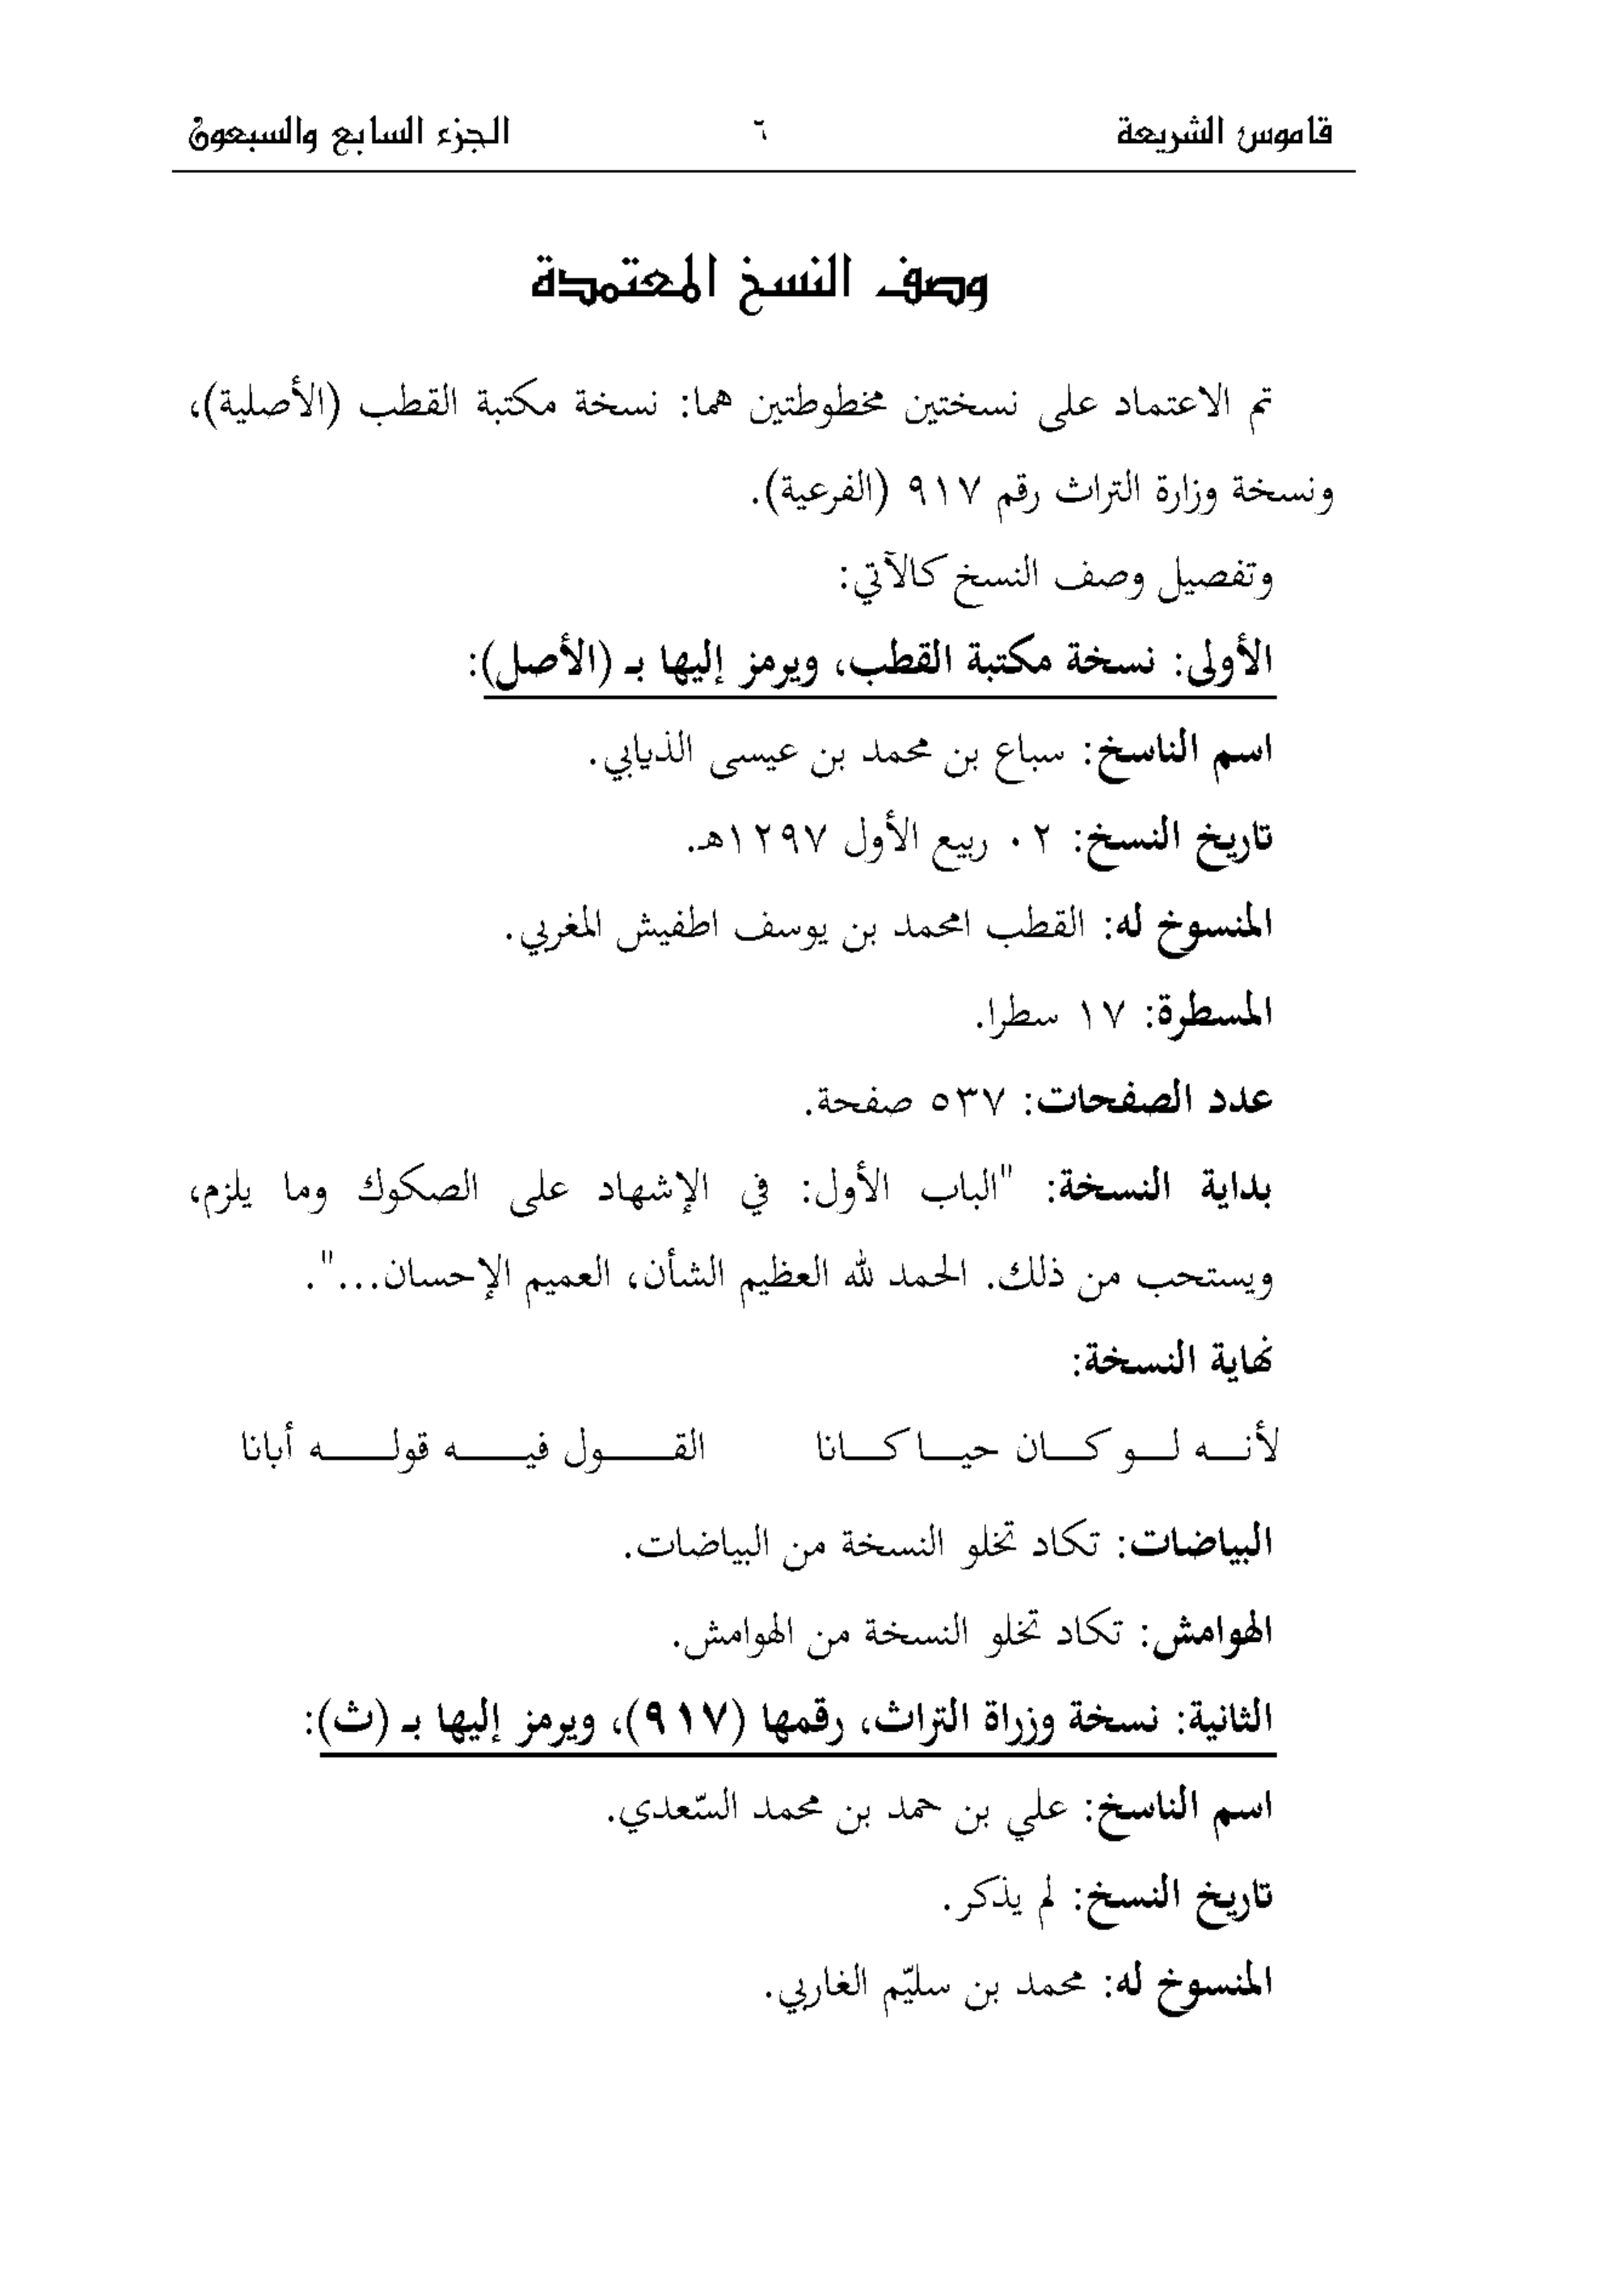 قاموس الشريعة ٦ الجزء السابع والسبعون
وصف النسخ المعتمدة
تم الاعتماد على نسختين مخطوطتين هما: نسخة مكتبة القطب (الأصلية)،
ونسخة وزارة التراث رقم ٩١٧ (الفرعية).
وتفصيل وصف النسخ كالآتي:
الأولى: نسخة مكتبة القطب، ويرمز إليها بـ (الأصل):
اسم الناسخ: سباع بن محمد بن عيسى الذيابي.
تاريخ النسخ: ٠٢ ربيع الأول ١٢٩٧هـ.
المنسوخ له: القطب امحمد بن يوسف اطفيش المغربي.
المسطرة: ١٧ سطرا.
عدد الصفحات: ٥٣٧ صفحة.
بداية النسخة: "الباب الأول: في الإشهاد على الصكوك وما يلزم،
ويستحب من ذلك. الحمد لله العظيم الشأن، العميم الإحسان...".
نهاية النسخة:
لأنه لو كان حيا كانا القول فيه قوله أبانا
البياضات: تكاد تخلو النسخة من البياضات.
الهوامش: تكاد تخلو النسخة من الهوامش.
الثانية: نسخة وزراة التراث، رقمها (٩١٧)، ويرمز إليها بـ (ث):
اسم الناسخ: علي بن حمد بن محمد السّعدي.
تاريخ النسخ: لم يذكر.
المنسوخ له: محمد بن سليّم الغاربي.